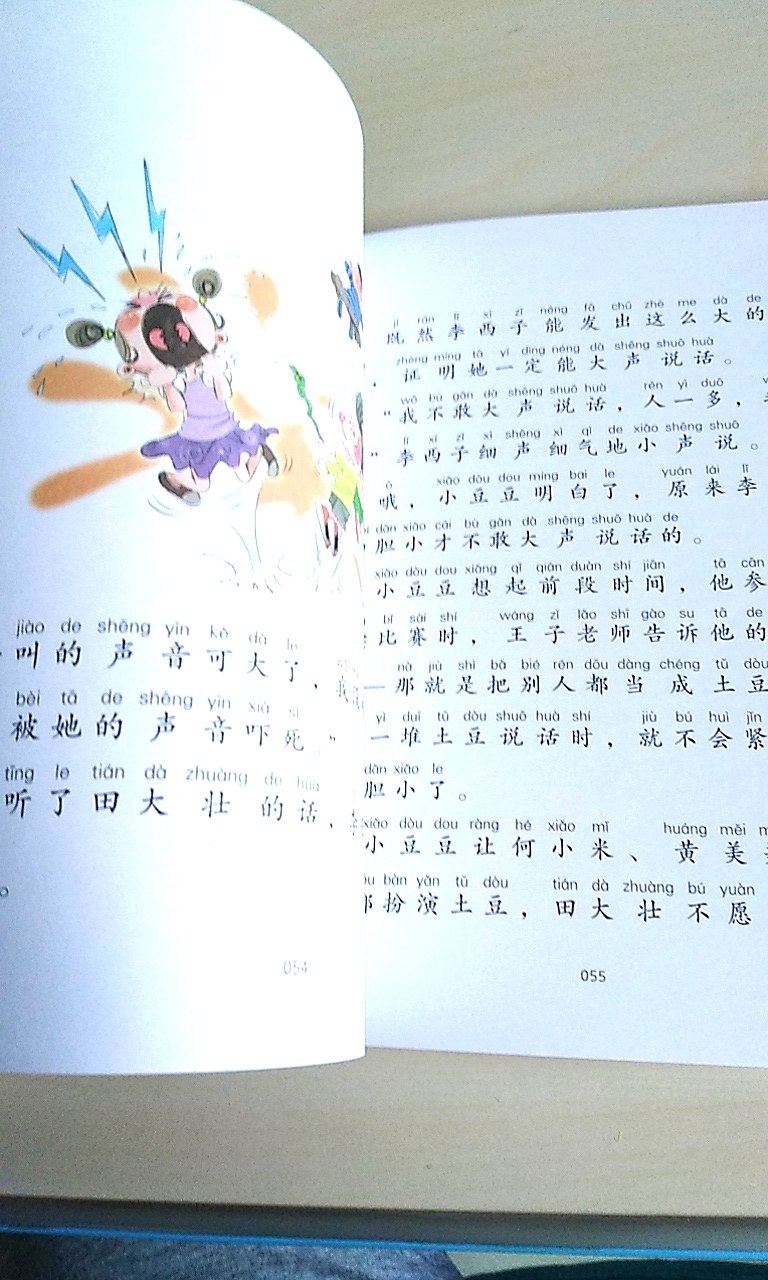 jiào de shēng yīn kě dà le
叫的声音可大了，
bèi tā de shēng yīn xià sǐ
被她的声音吓死
tīng le tián dà zhuàng de huà
听了田大壮的话，
054
jì rán lǐ xī zǐ néng fā chū zhè me dà de
既然李西子能发出这么大的
zhèng míng tā yí dìng néng dà shēng shuō huà
证明她一定能大声说话。
wǒ bù gǎn dà shēng shuō huà rén yì duō
“我不敢大声说话，人一多，
lǐ xī zǐ xì shēng xì qì de xiǎo shēng shuō
”李西子细声细气地小声说。
ò xiǎo dòu dou míng bai le yuán lái lǐ
哦，小豆豆明白了，原来李
dǎn xiǎo cái bù gǎn dà shēng shuō huà de
胆小才不敢大声说话的。
xiǎo dòu dou xiǎng qǐ qián duàn shí jiān tā cān
小豆豆想起前段时间，他参
bǐ sài shí wáng zǐ lǎo shī gào su tā de
比赛时，王子老师告诉他的
nà jiù shì bǎ bié rén dōu dàng chéng tǔ dòu
—那就是把别人都当成土豆
yì duī tǔ dòu shuō huà shí jiù bú huì jǐn
一堆土豆说话时，就不会紧
dǎn xiǎo le
胆小了。
xiǎo dòu dou ràng hé xiǎo mǐ huáng měi
小豆豆让何小米、黄美
bàn yǎn tǔ dòu tián dà zhuàng bú yuàn
扮演土豆，田大壮不愿
055